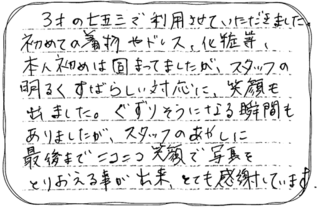 3才の七五三で利用させていただきました。
初めての着物やドレス、化粧等、
本人初めは固まってましたが、スタッフの
明るくすばらしい対応に、笑顔も
出ました。ぐずりそうになる瞬間も
ありましたが、スタッフのあやしに
最後までニコニコ笑顔で写真を
とりおえる事が出来、とても感謝しています。